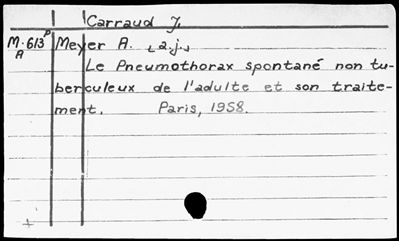 Carraud J.
M.613 P Meyer A. [a.j.]
A
Le Pneumothorax spontané non tu-
berculeux de l'adulte et son traite-
ment. Paris, 1958.
+